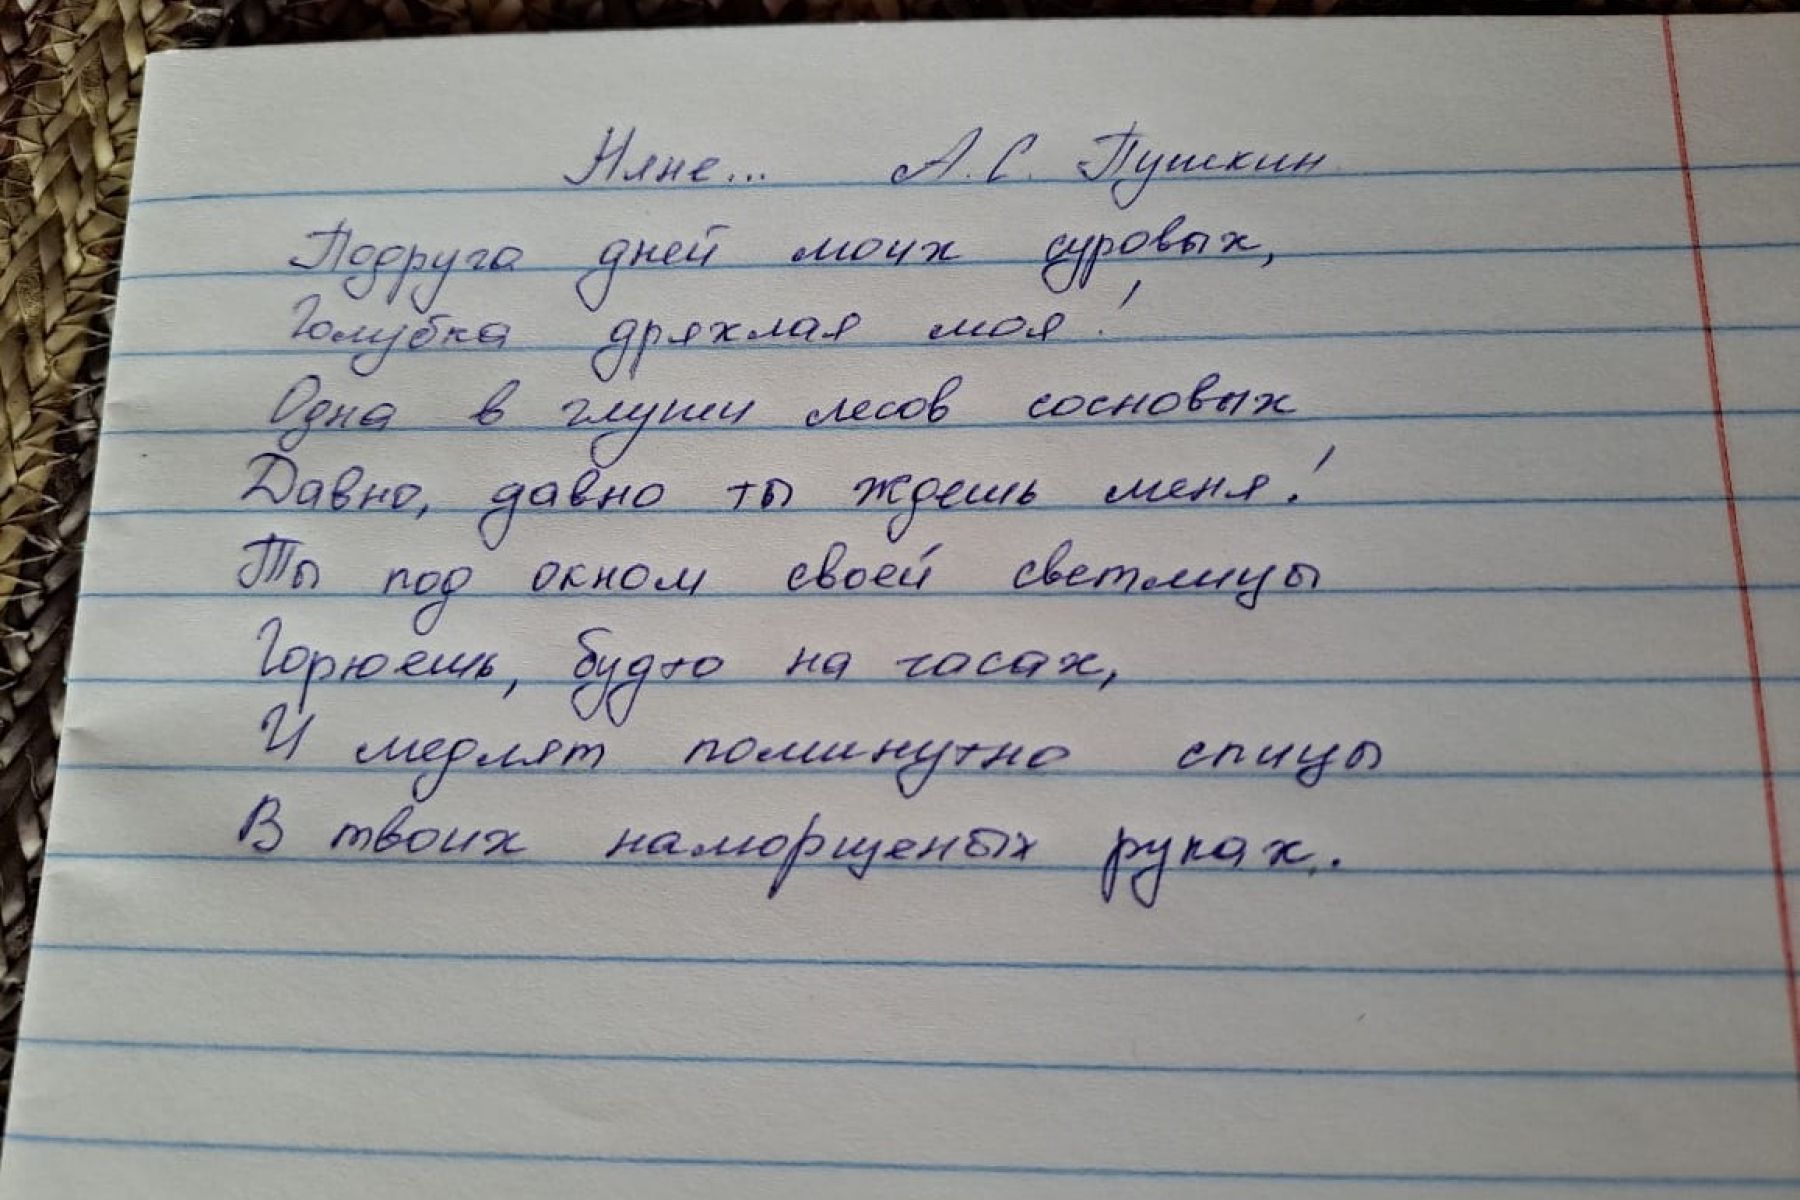 Няне... А.С. Пушкин
Подруга дней моих суровых,
Голубка дряхлая моя!
Одна в глуши лесов сосновых
Давно, давно ты ждешь меня!
Ты под окном своей светлицы
Горюешь, будто на часах,
И медлят поминутно спицы
В твоих наморщеных руках.